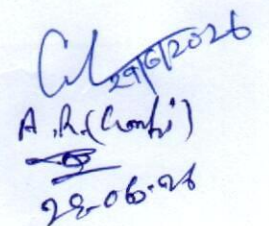 29/6/2026
A.R. (Confi)
29-06-26